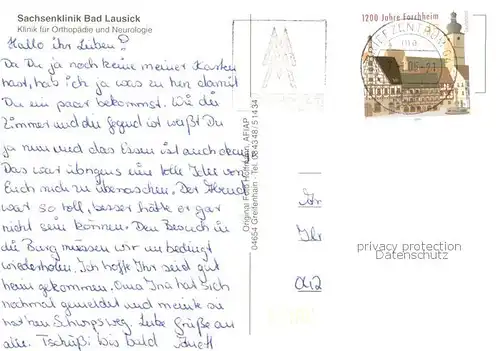 Sachsenklinik Bad Lausick
Klinik für Orthopädie und Neurologie
Hallo ihr Lieben!
Da Du ja noch keine meiner Karten
hast, hab ich was zu tun damit
Du ein paar bekommst. Wie die
Zimmer und die Gegend ist weißt Du
ja nun und das Essen ist auch
Das war übrigens eine tolle Idee von
Euch mich zu überraschen. Der Abend
war so toll, besser hätte er gar
nicht sein können. Den Besuch in
die Burg müssen wir unbedingt
wiederholen. Ich hoffe Ihr seid gut
heim gekommen. Oma Ina hat sich
nochmal gemeldet und meinte sie
Schnapsweg. Liebe Grüße an
alle. Tschüß! bis bald
Original Foto Hoffmann, AFIAP
04654 Greifenhain - Tel. 034348/51434
1200 Jahre Forchheim
BRIEFZENTRUM
privacy protection
Datenschutz